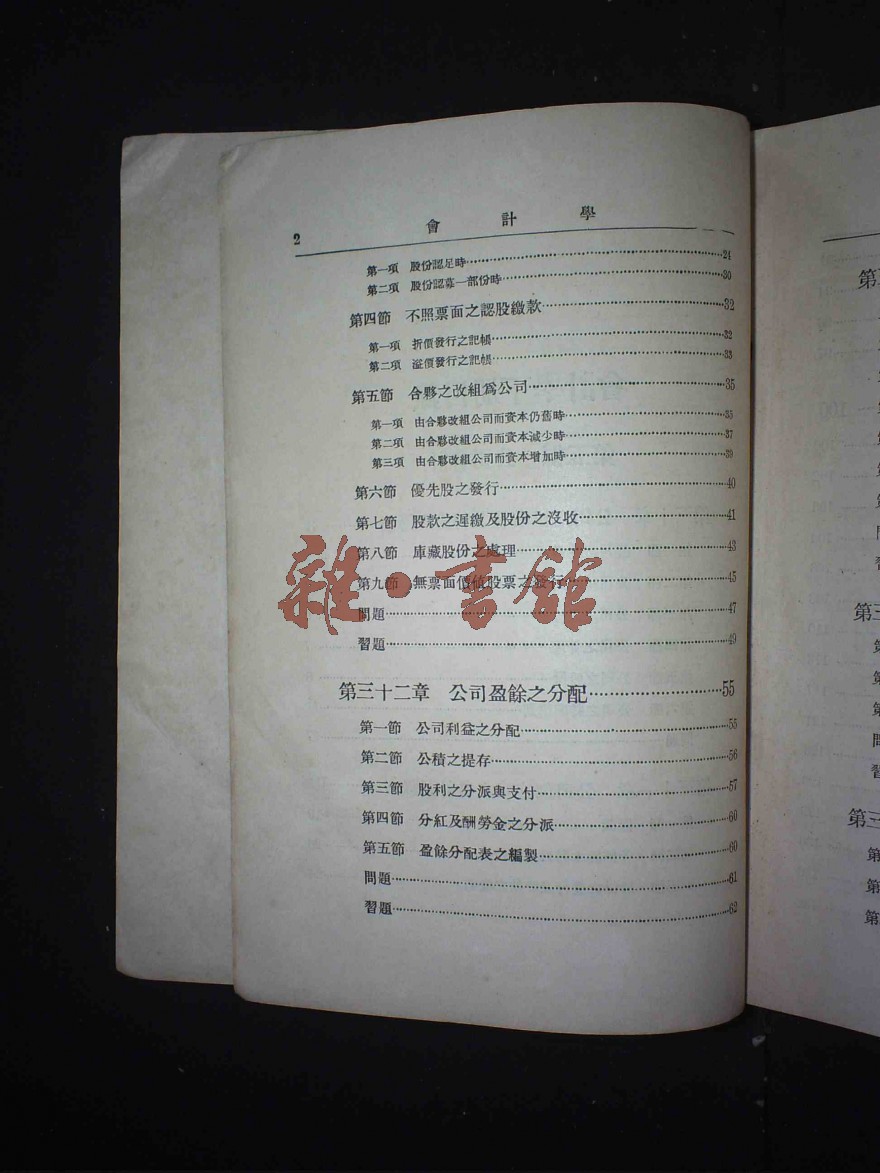 2
會計學
第一項 股份認足時……24
第二項 股份認募一部份時……30
第四節 不照票面之認股繳款……32
第一項 折價發行之記帳……32
第二項 溢價發行之記帳……33
第五節 合夥之改組爲公司……35
第一項 由合夥改組公司而資本仍舊時……35
第二項 由合夥改組公司而資本減少時……37
第三項 由合夥改組公司而資本增加時……39
第六節 優先股之發行……40
第七節 股款之遲繳及股份之沒收……41
第八節 庫藏股份之處理……43
第九節 無票面價值股票之發行……45
問題……47
習題……49
雜·書館
第三十二章 公司盈餘之分配……55
第一節 公司利益之分配……55
第二節 公積之提存……56
第三節 股利之分派與支付……57
第四節 分紅及酬勞金之分派……60
第五節 盈餘分配表之編製……60
問題……61
習題……62
第
第
第
問
習
第三
第
第
第
問
習
第三
第
第
第